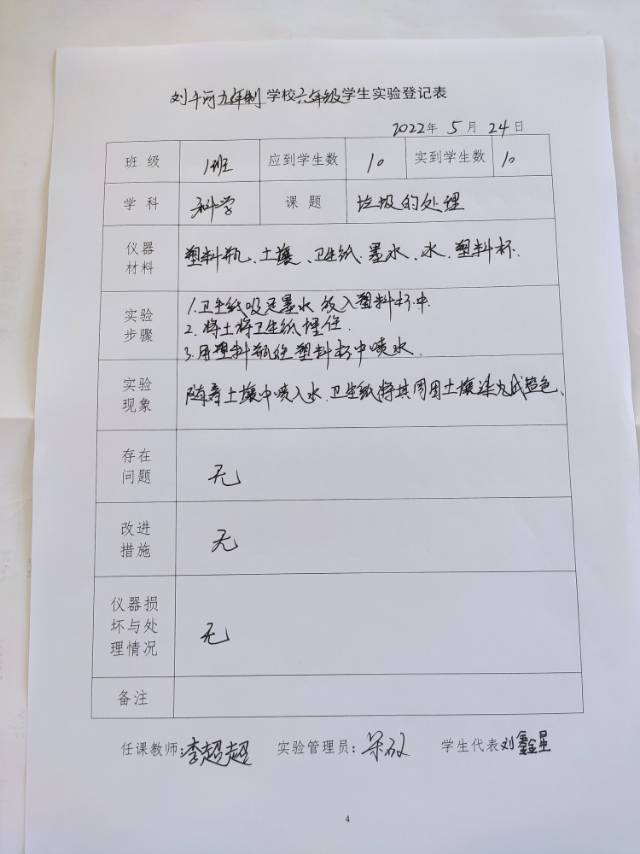 刘千河九年制学校六年级学生实验登记表
2022年 5 月 24 日
班 级 1班 应到学生数 10 实到学生数 10
学 科 科学 课 题 垃圾的处理
仪器材料 塑料瓶、土壤、卫生纸、墨水、水、塑料杯.
实验步骤 1.卫生纸吸足墨水放入塑料杯中.
2.将土将卫生纸埋住.
3.用塑料瓶往塑料杯中喷水.
实验现象 随着土壤中喷入水.卫生纸将其周围土壤染为成蓝色、
存在问题 无
改进措施 无
仪器损坏与处理情况 无
备注
任课教师:李超超 实验管理员: 学生代表刘鑫星
4